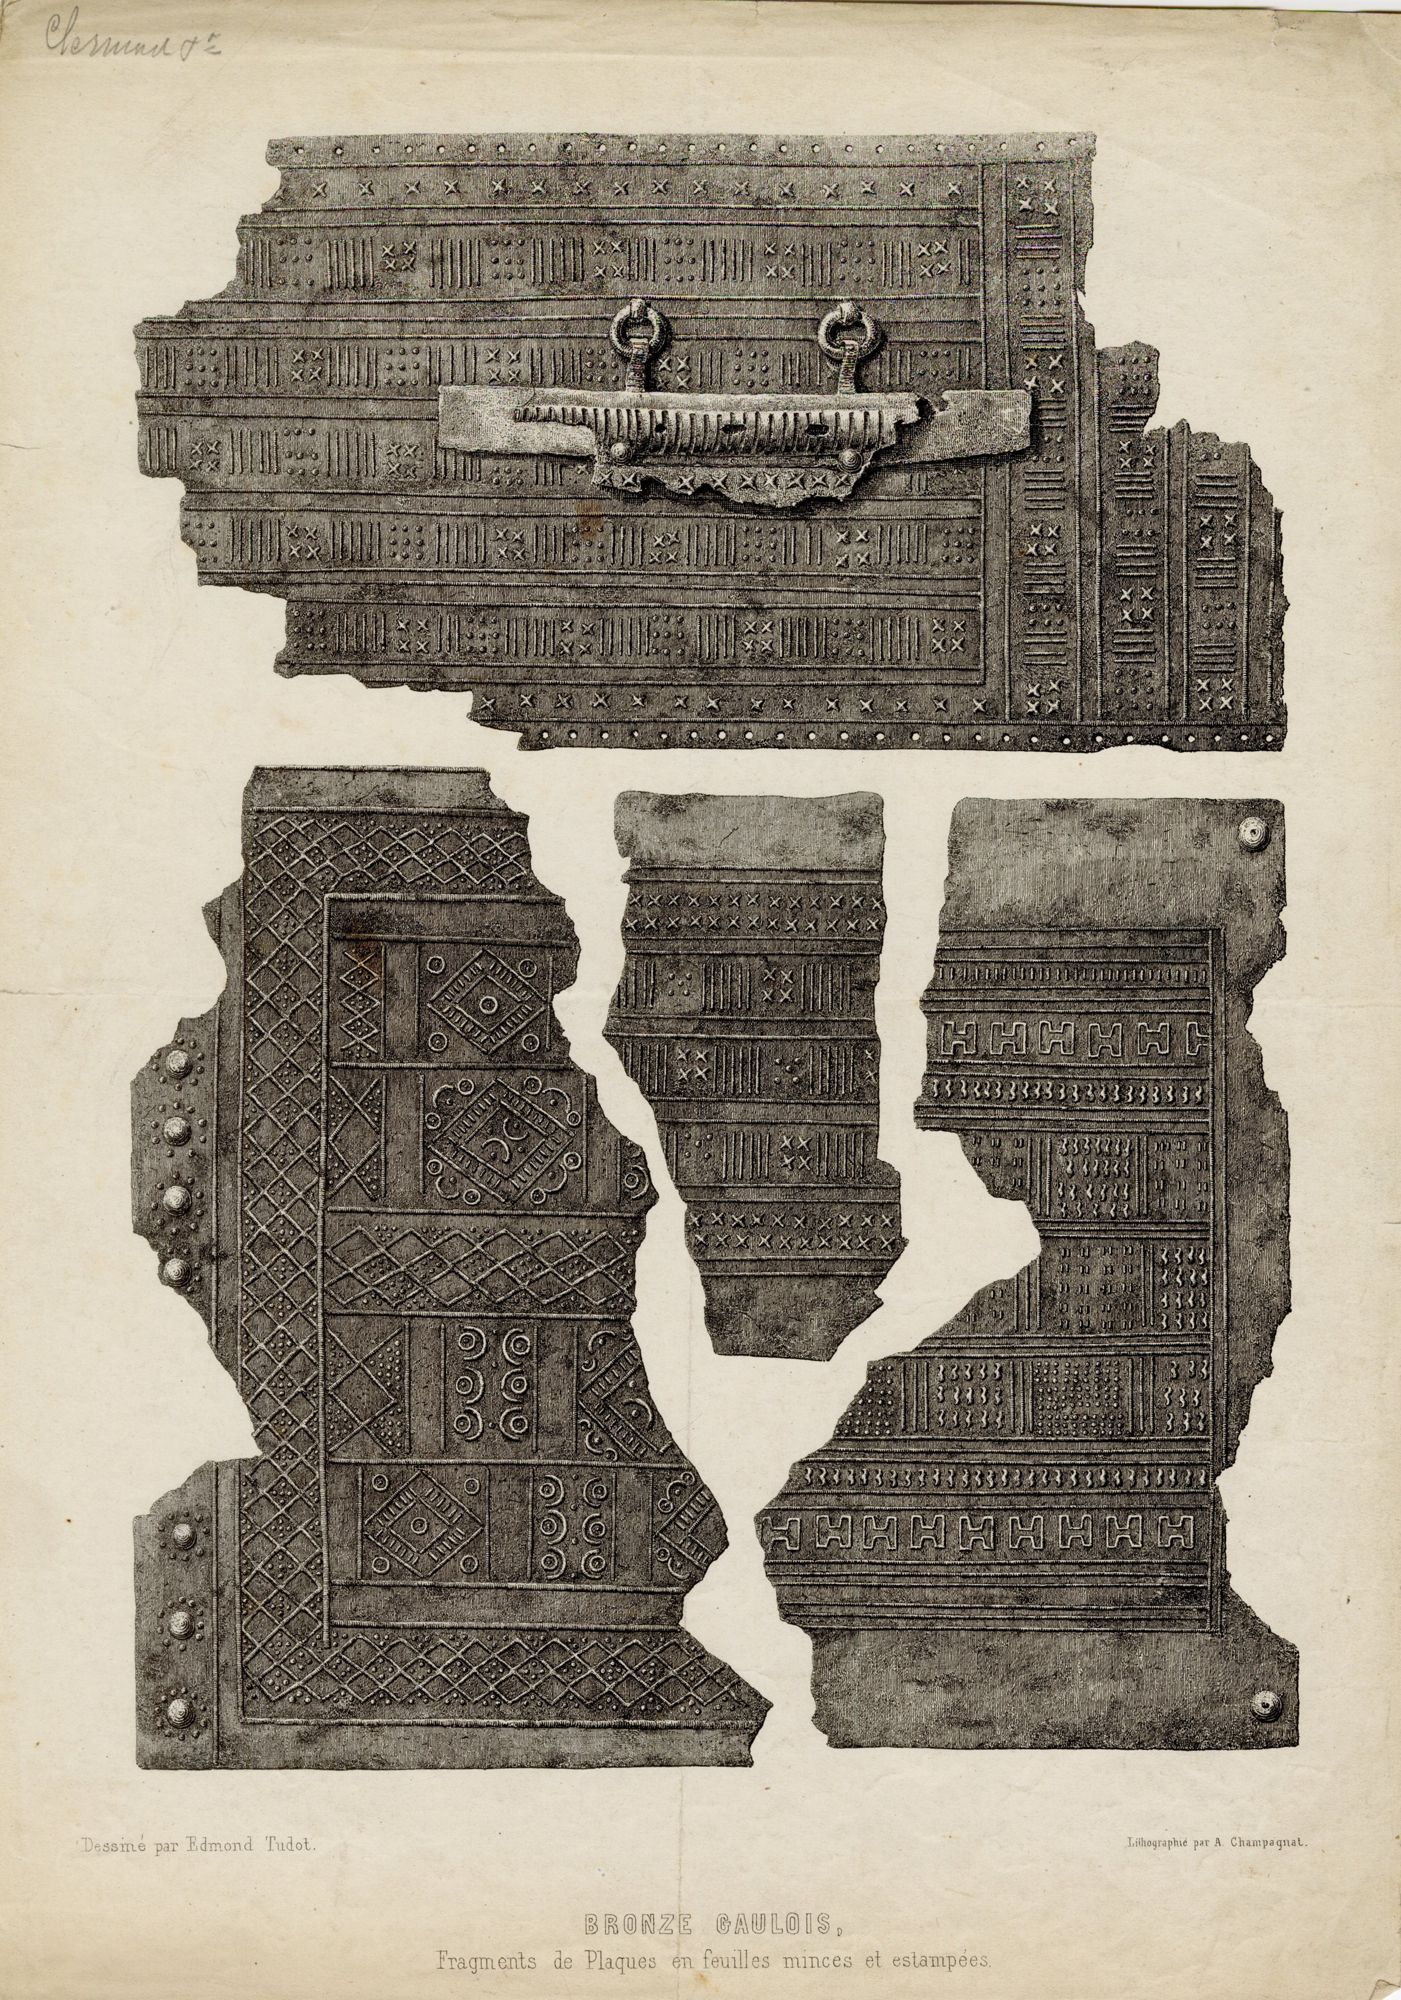 Dessiné par Edmond Tudot.
Lithographié par A. Champagnat.
BRONZE GAULOIS,
Fragments de Plaques en feuilles minces et estampées.